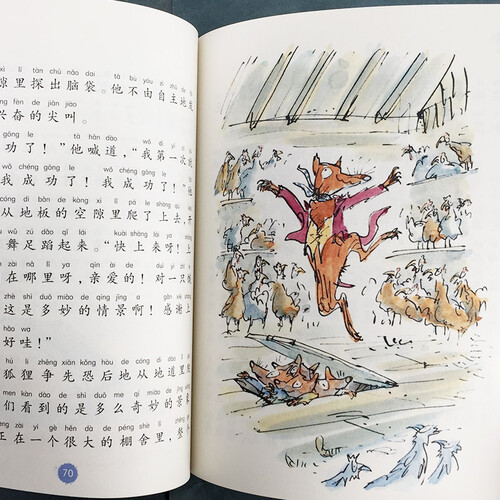 xì lǐ tàn chū nǎo dai tā bù yóu zì zhǔ de
隙里探出脑袋。他不由自主地发
fèn de jiān jiào
兴奋的尖叫。
gōng le tā hǎn dào wǒ dì yī cì
功了！”他喊道，“我第一次
wǒ chéng gōng le wǒ chéng gōng le
我成功了！我成功了！”他
cóng dì bǎn de kòng xì lǐ pá le shàng qù
从地板的空隙里爬了上去，开
wǔ zú dǎo qǐ lái kuài shàng lái ya shàng
舞足蹈起来。“快上来呀！上
zài nǎ lǐ ya qīn ài de duì yì zhī
在哪里呀，亲爱的！对一只
zhè shì duō miào de qíng jǐng a gǎn xiè shàng
这是多妙的情景啊！感谢上
hǎo wa
好哇！”
hú li zhēng xiān kǒng hòu de cóng dì dào lǐ
狐狸争先恐后地从地道里爬
men kàn dào de shì duō me qí miào de jǐng
们看到的是多么奇妙的景象
zhèng zài yí gè hěn dà de péng shè lǐ zhěng
正在一个很大的棚舍里，整个
70